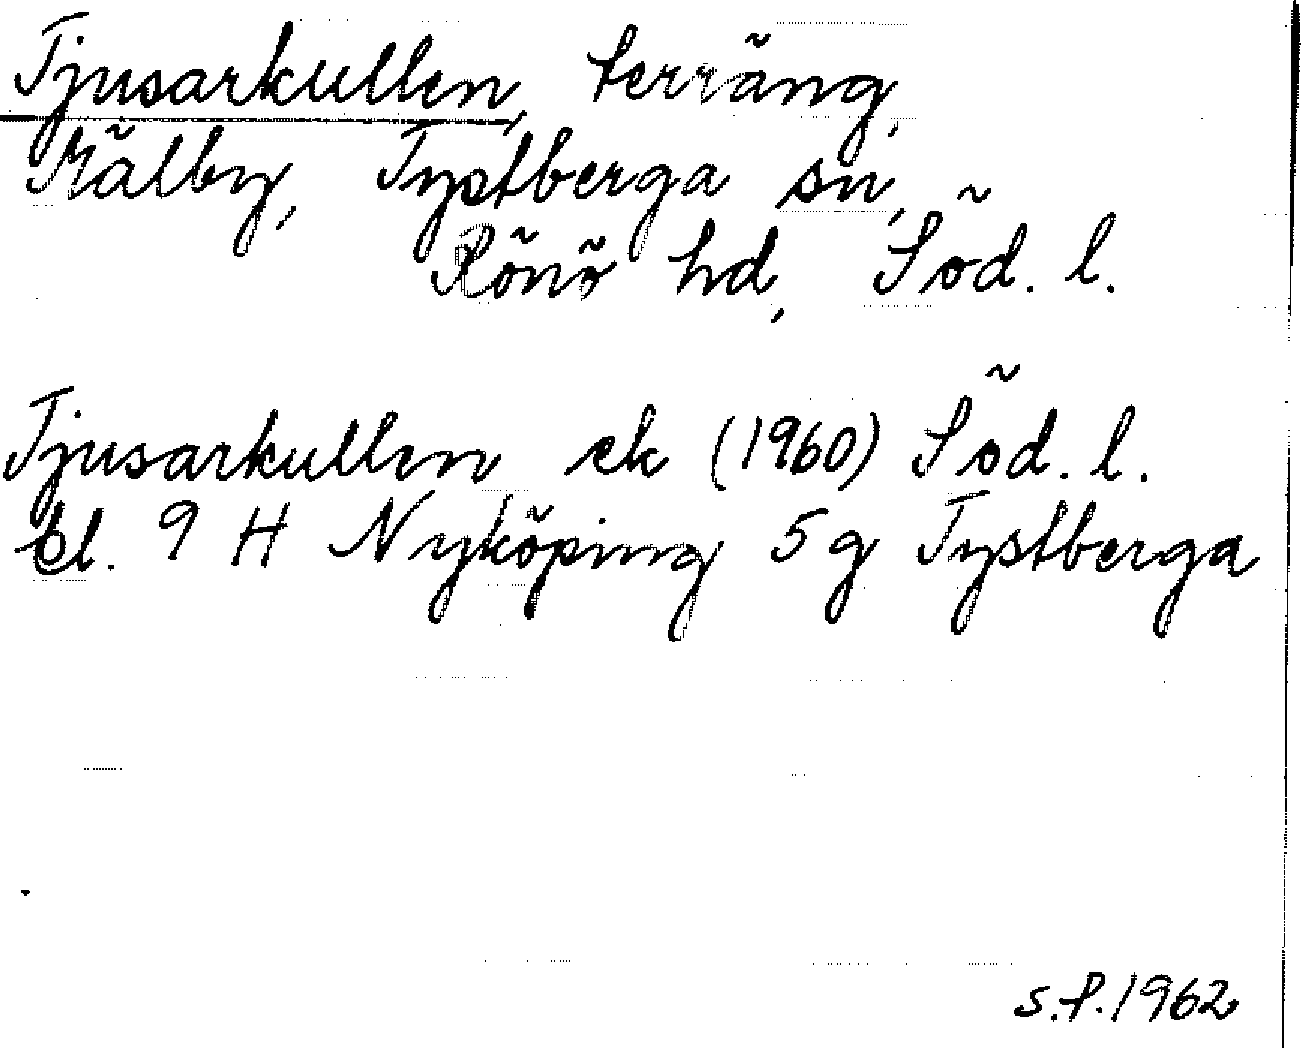 Tjusarkullen, terräng,
Kälby, Tystberga sn,
Rönö hd, Söd. l.
Tjusarkullen ek (1960) Söd. l.
bl. 9 H Nyköping 5 g Tystberga
s.f. 1962